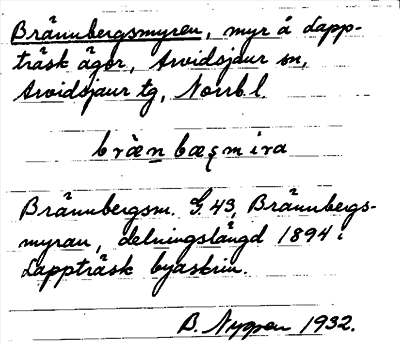 Brännbergsmyren, myr å Lapp-
träsk ägor, Arvidsjaur sn,
Arvidsjaur tg, Norrb. l.
bræ̀n bæʂmira
Brännbergsm. G. 43, Brännbergs-
myran, delningslängd 1894 i
Lappträsk byaskrin.
B. Nygren 1932.